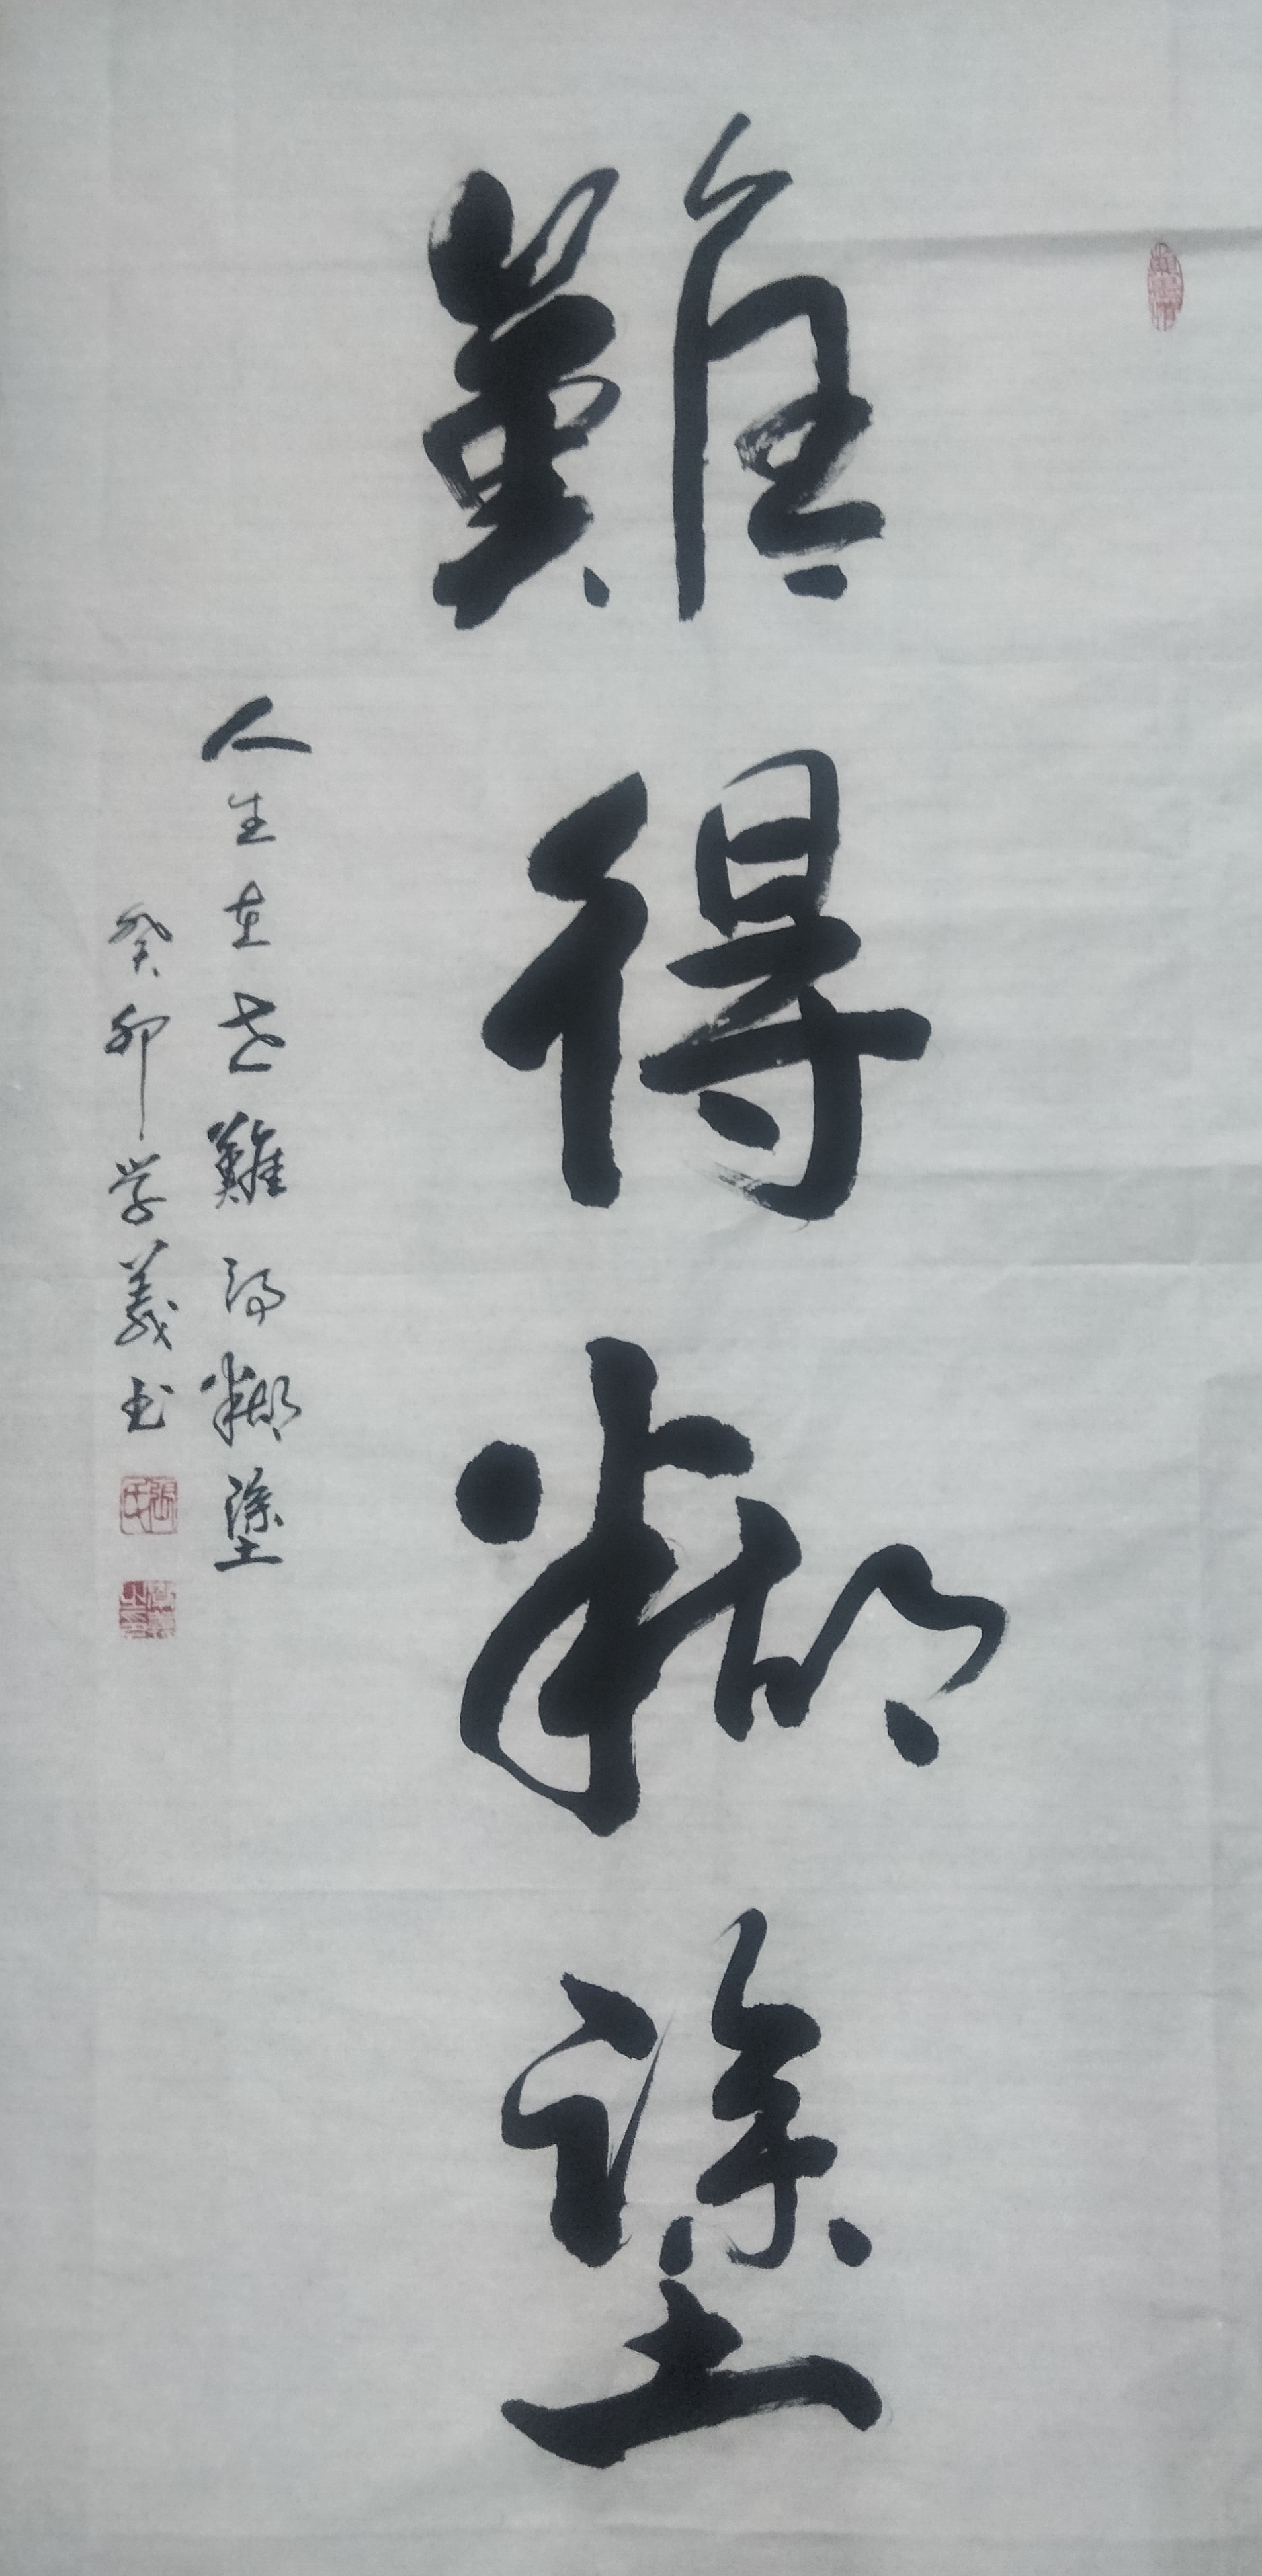 難得糊塗
人生在世難得糊塗
癸卯学義书